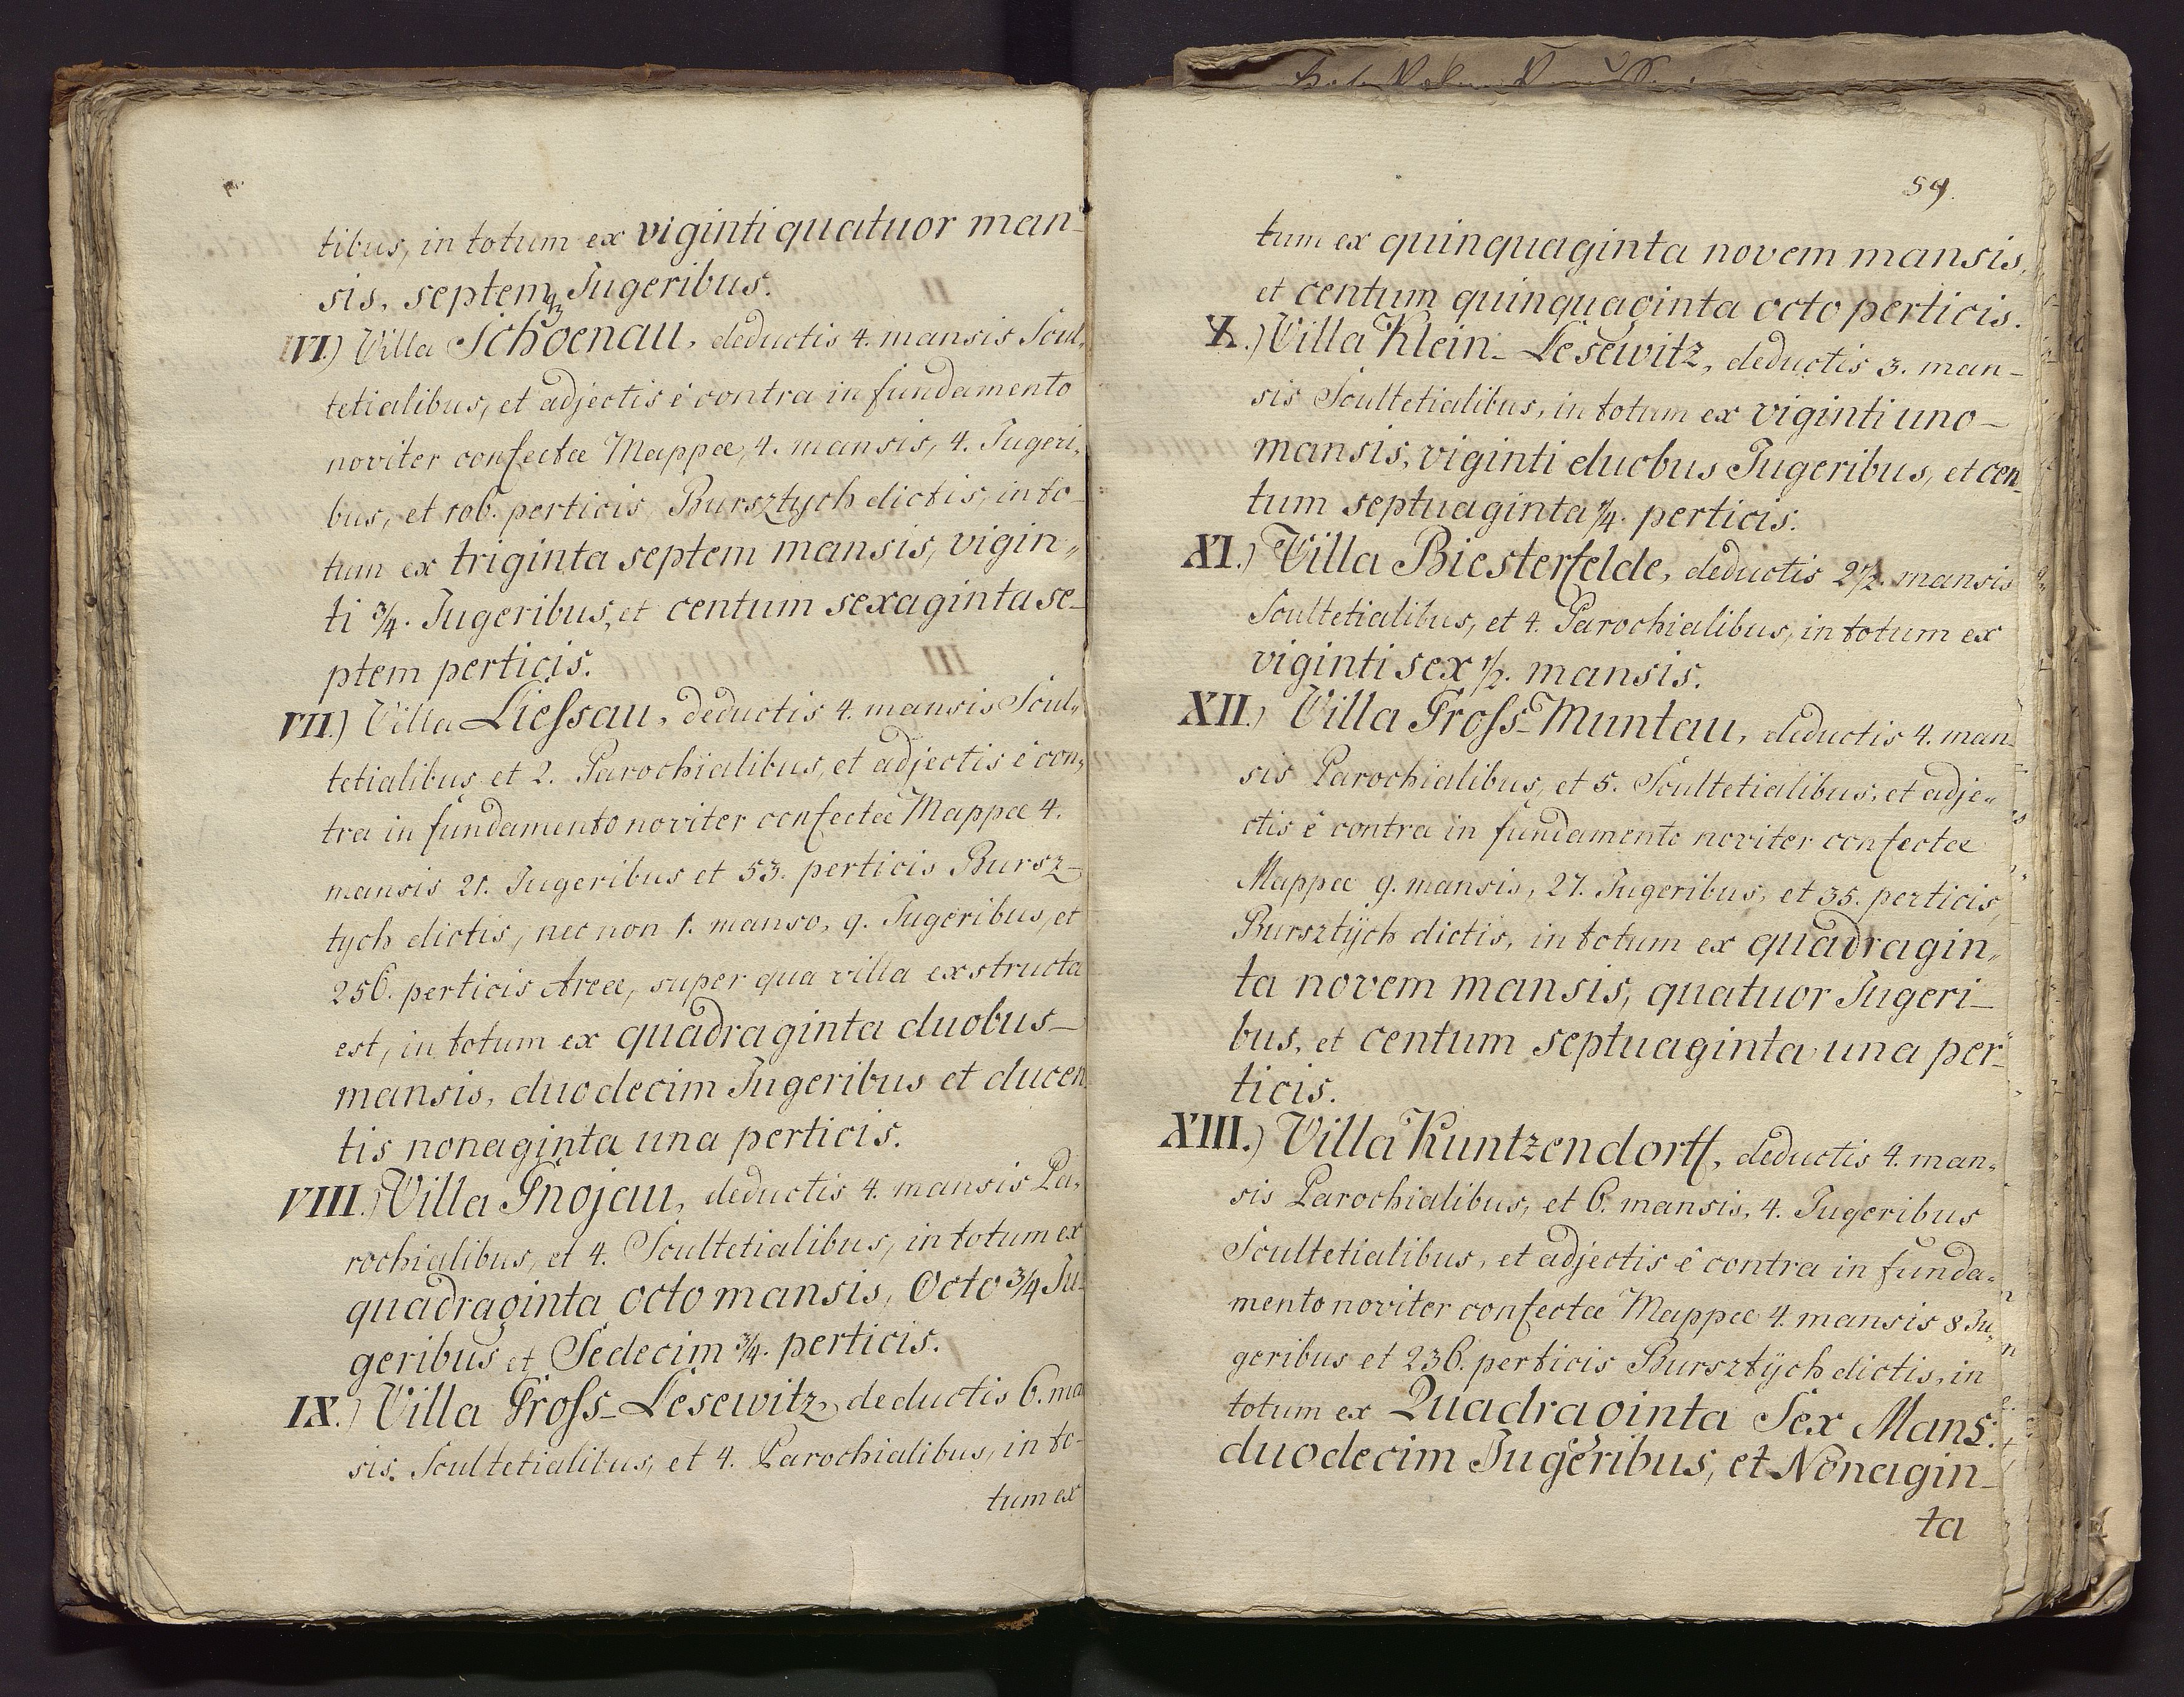 tibus, in totum ex viginti quatuor man-
sis, septem Jugeribus.
VI.) Villa Schoenau, deductis 4. mansis Scul,
tetialibus, et adjectis è contra in fundamento
noviter confectæ Mappæ, 4. mansis, 4. Jugeri,
bus, et 106. perticis Bursztych dictis, in to-
tum ex triginta septem mansis, vigin„
ti 3/4. Jugeribus, et centum sexaginta se-
ptem perticis.
VII.) Villa Liessau, deductis 4. mansis Scul„
tetialibus et 2. Parochialibus, et adjectis è con„
tra in fundamento noviter confectæ Mappæ 4.
mansis 21. Jugeribus et 53. perticis Bursz-
tych dictis, nec non 1. manso, 9. Jugeribus, et
256. perticis Areæ, super qua villa exstructa
est, in totum ex quadraginta duobus-
mansis, duodecim Jugeribus et ducen
tis nonaginta una perticis.
VIII.) Villa Gnojau, deductis 4. mansis Pa,
rochialibus, et 4. Scultetialibus, in totum ex
quadraginta octo mansis, Octo 3/4 Ju-
geribus et Sedecim 3/4. perticis.
IX.) Villa Gross-Lesewitz, deductis 6. ma
sis. Scultetialibus, et 4. Parochialibus, in to-
tum ex
59.
tum ex quinquaginta novem mansis,
et centum quinquaginta octo perticis.
X.) Villa Klein-Lesewitz, deductis 3. man-
sis Scultetialibus, in totum ex viginti uno-
mansis, viginti duobus Jugeribus, et cen-
tum septuaginta 1/4. perticis.
XI.) Villa Biesterfelde, deductis 2 1/2. mansis
Scultetialibus, et 4. Parochialibus, in totum ex
viginti sex 1/2. mansis.
XII.) Villa Gross-Muntau, deductis 4. man-
sis Parochialibus, et 5. Scultetialibus, et adje„
ctis è contra in fundamento noviter confectæ
Mappæ 9. mansis, 27. Jugeribus, et 35. perticis,
Bursztÿch dictis, in totum ex quadragin„
ta novem mansis, quatuor Jugeri-
bus, et centum septuaginta una per-
ticis.
XIII.) Villa Kuntzendorff, deductis 4. man„
sis Parochialibus, et 6. mansis, 4. Jugeribus
Scultetialibus, et adjectis è contra in funda„
mento noviter confectæ Mappæ 4. mansis 8 Ju„
geribus et 236. perticis Bursztÿch dictis, in
totum ex Quadraginta Sex Mans:
duodecim Jugeribus, et Nonagin-
ta